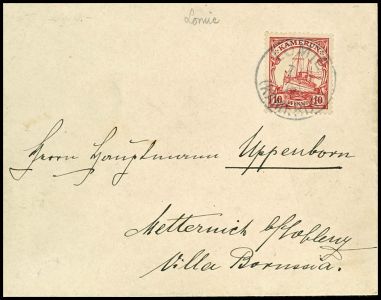 Lomie
KAMERUN
10 PFENNIG 10
Herrn Hauptmann Uppenborn
Metternich b/Coblenz
Villa Borussia.